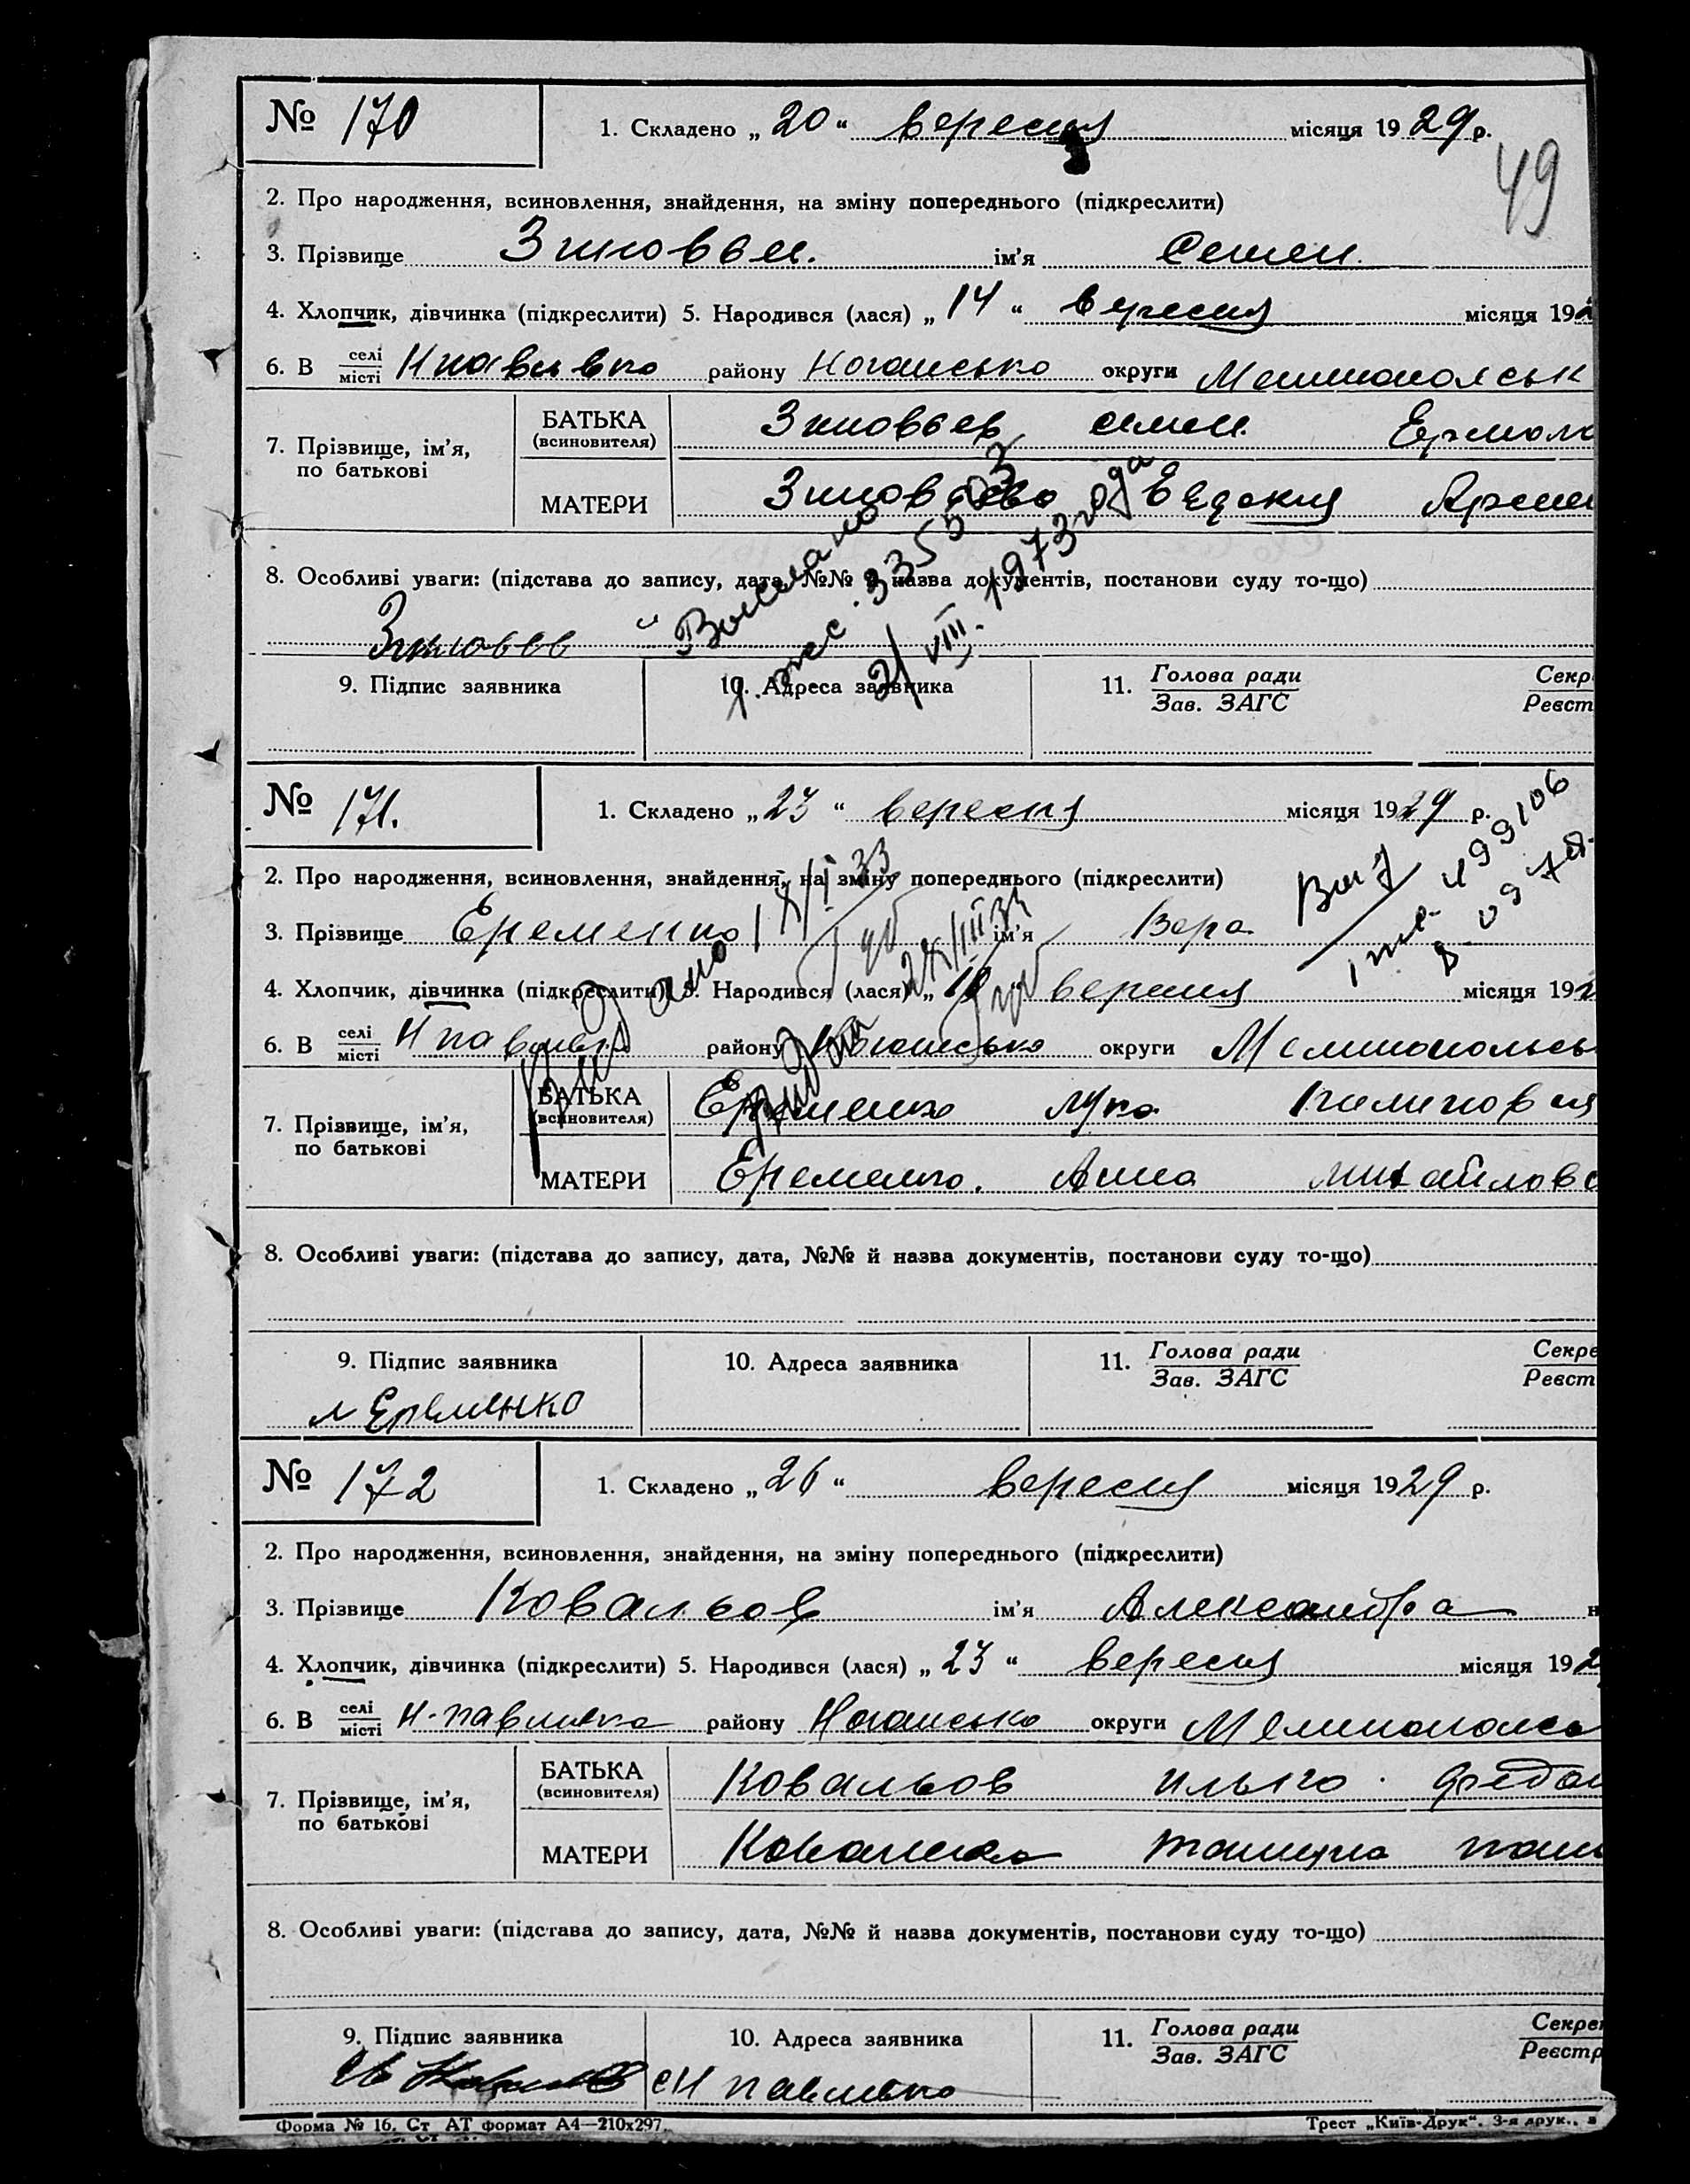 № 170
1. Складено „ 20 “ вересня місяця 19 29 р.
49
2. Про народження, всиновлення, знайдення, на зміну попереднього (підкреслити)
3. Прізвище Зиновьев. ім'я Семен.
4. Хлопчик, дівчинка (підкреслити) 5. Народився (лася) „ 14 “ вересня місяця 192
6. В селі місті Н павлівка району Ногайсько округи Мелитопольськ
7. Прізвище, ім'я, по батькові
БАТЬКА (всиновителя) Зиновьев Семен Ермола
МАТЕРИ Зиновьева Евдокия Арте
8. Особливі уваги: (підстава до запису, дата, №№ й назва документів, постанови суду то-що)
Зиновев
Выслано
21 VIII. 1973 года
9. Підпис заявника
10. Адреса заявника
11. Голова ради Зав. ЗАГС
Секр
Реєст
№ 171.
1. Складено „ 23 “ вересня місяця 19 29 р.
2. Про народження, всиновлення, знайдення, на зміну попереднього (підкреслити)
3. Прізвище Еременко ім'я Вера
499106
4. Хлопчик, дівчинка (підкреслити) 5. Народився (лася) „ вересня місяця 192
6. В селі місті Н павлівка району Ногайсько округи Мелитопольсь
Видано
7. Прізвище, ім'я, по батькові
БАТЬКА (всиновителя) Еременко Лука
МАТЕРИ Еременко. Анна Михайлов
8. Особливі уваги: (підстава до запису, дата, №№ й назва документів, постанови суду то-що)
9. Підпис заявника
10. Адреса заявника
11. Голова ради Зав. ЗАГС
Секре
Реєст
Л Еременко
№ 172
1. Складено „ 26 “ вересня місяця 19 29 р.
2. Про народження, всиновлення, знайдення, на зміну попереднього (підкреслити)
3. Прізвище Ковальов ім'я Александра н
4. Хлопчик, дівчинка (підкреслити) 5. Народився (лася) „ 23 “ вересня місяця 192
6. В селі місті Н-павливка району Ногайсько округи Мелитопольсь
7. Прізвище, ім'я, по батькові
БАТЬКА (всиновителя) Ковальов Илько Федо
МАТЕРИ Ковальова
8. Особливі уваги: (підстава до запису, дата, №№ й назва документів, постанови суду то-що)
9. Підпис заявника
10. Адреса заявника
11. Голова ради Зав. ЗАГС
Секре
Реєстр
с Н павливка
Форма № 16. Ст. АТ формат А4—210х297.
Трест „Київ-Друк“. 3-я друк., в